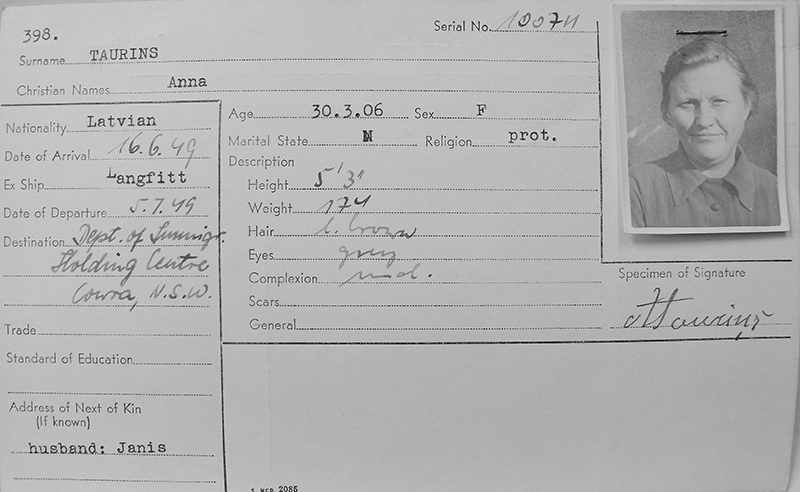 398.
Serial No. 10074
Surname TAURINS
Christian Names Anna
Nationality Latvian
Date of Arrival 16.6.49
Ex Ship Langfitt
Date of Departure 5.7.49
Destination Dept. of Immigr.
Holding Centre
Cowra, N.S.W.
Trade
Standard of Education
Address of Next of Kin
(If known)
husband: Janis
Age 30.3.06 Sex F
Marital State M Religion prot.
Description
Height 5'3"
Weight 174
Hair l. brown
Eyes grey
Complexion med.
Scars
General
Specimen of Signature
ATaurinş
2085